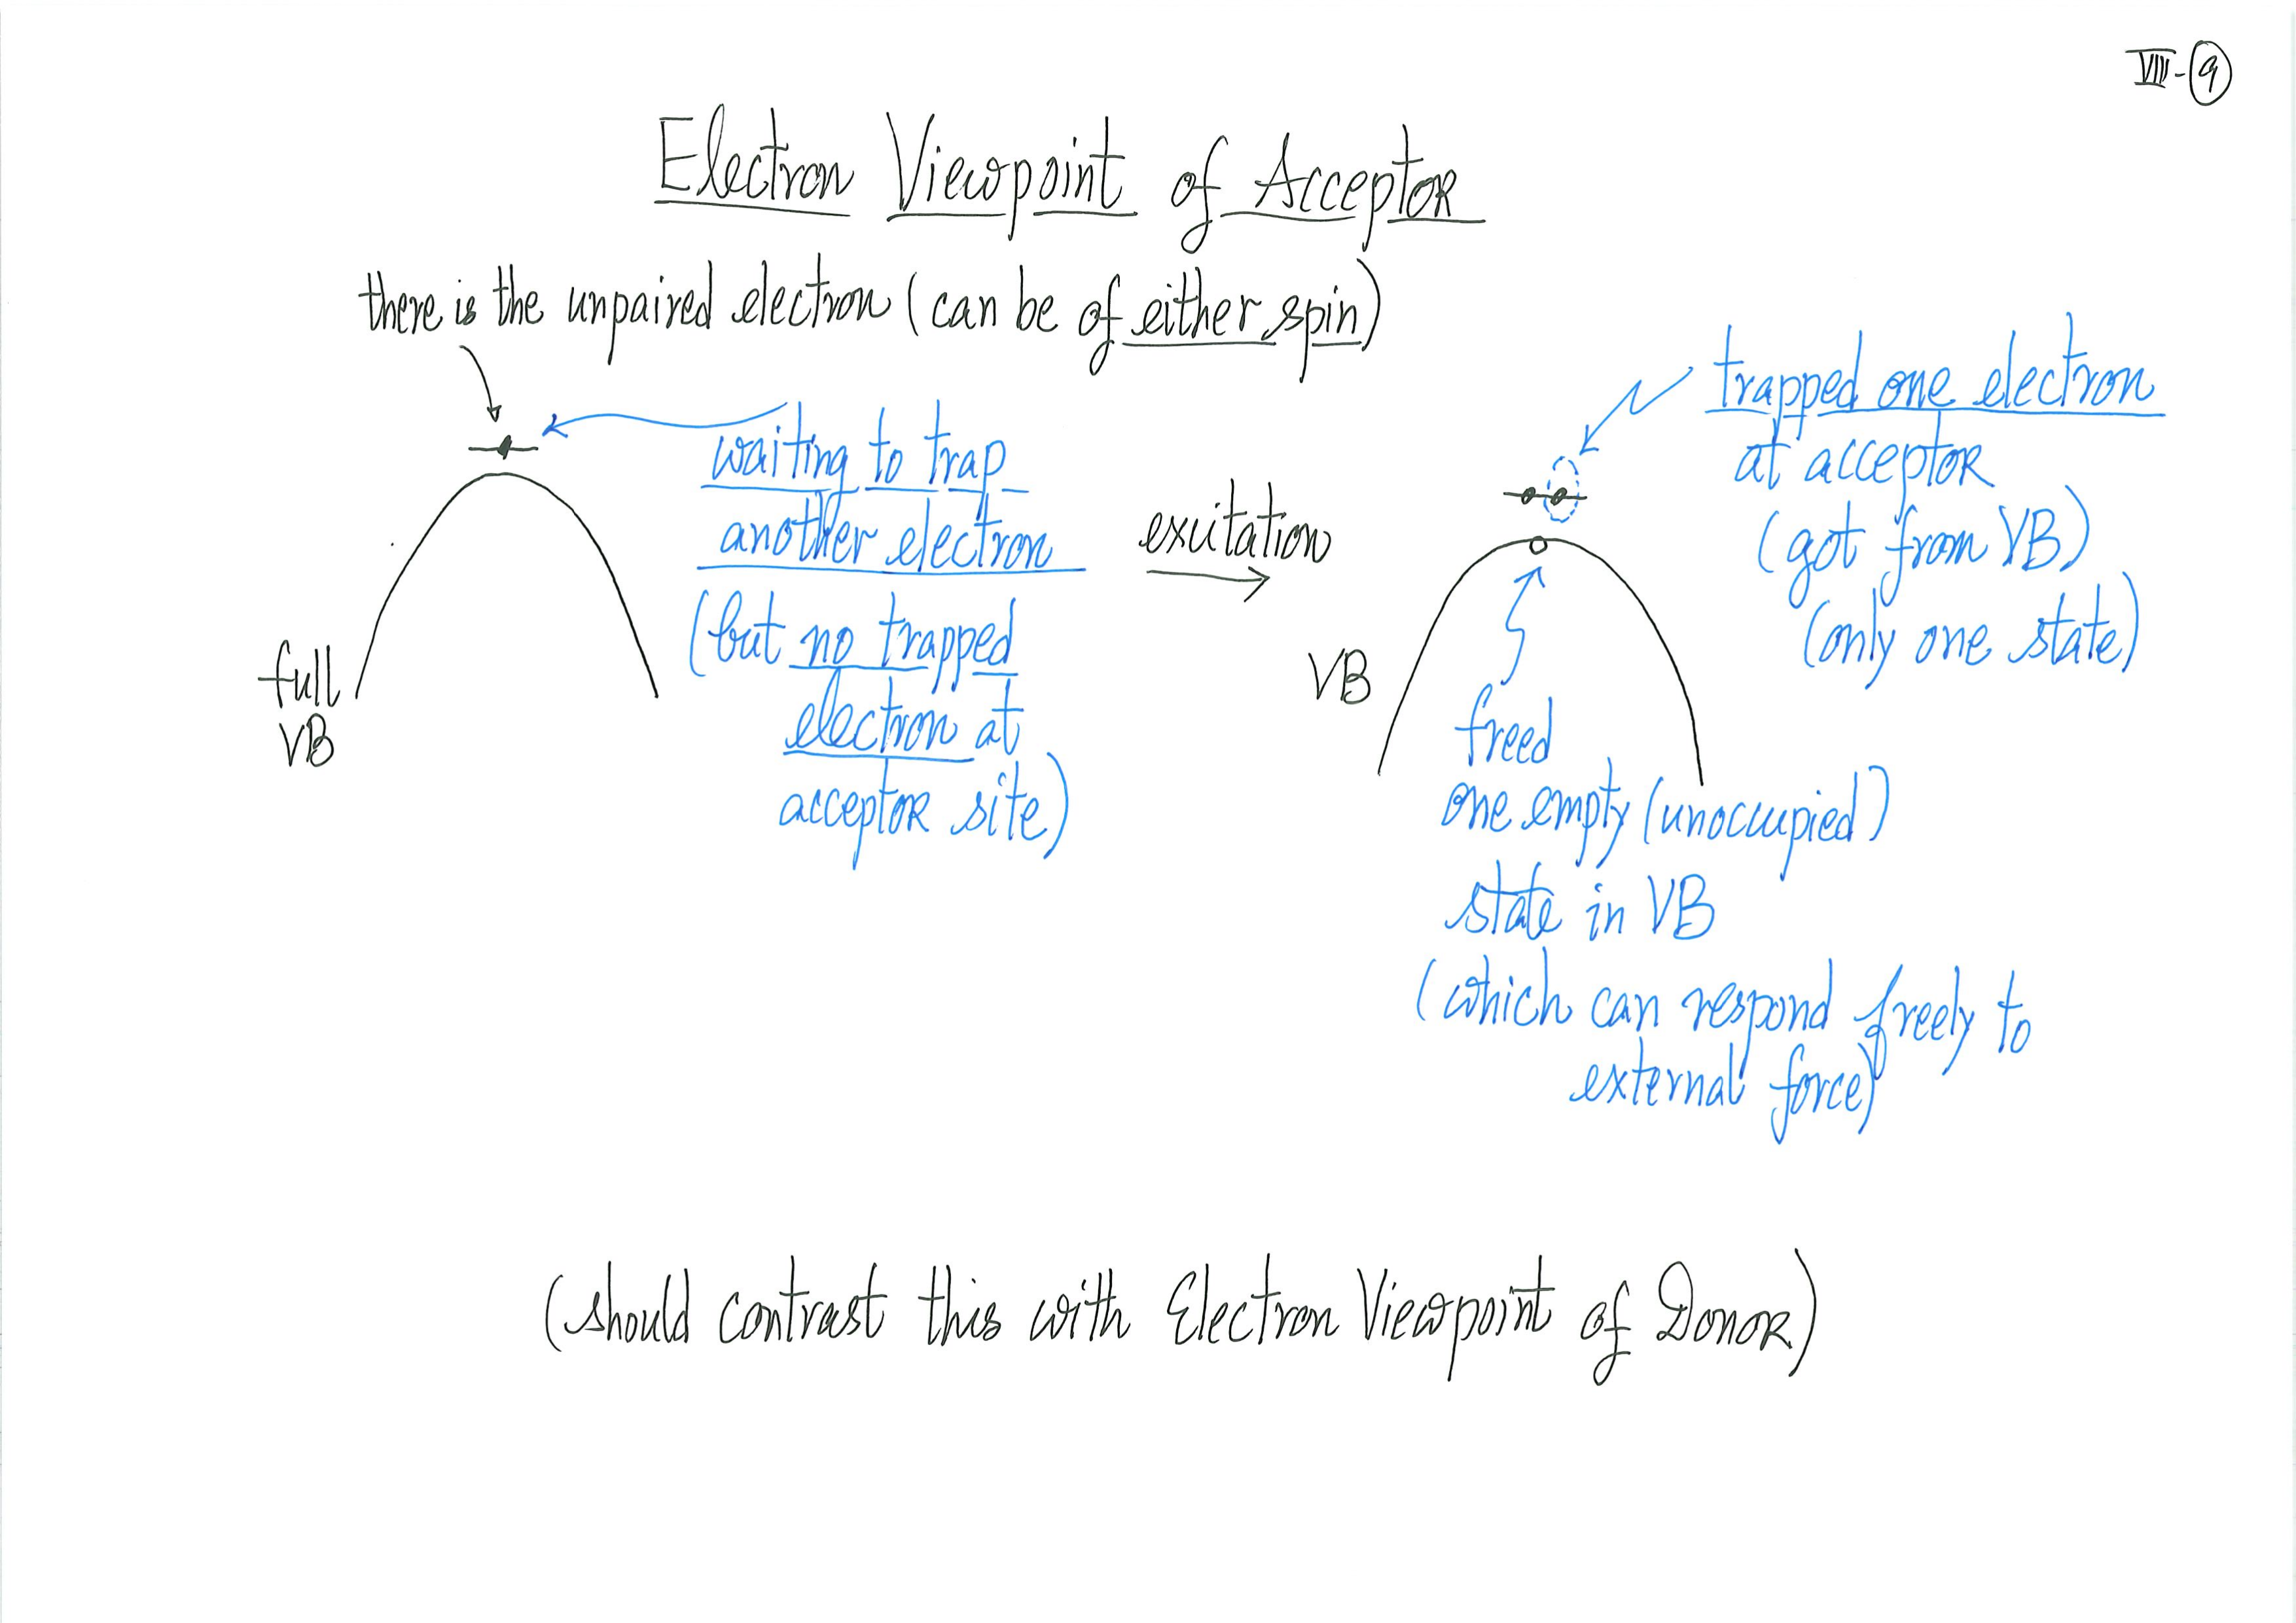 VIII-9
Electron Viewpoint of Acceptor
there is the unpaired electron (can be of either spin)
waiting to trap
another electron
(but no trapped
electron at
acceptor site)
full
VB
excitation
trapped one electron
at acceptor
(got from VB)
(only one state)
VB
freed
one empty (unoccupied)
state in VB
(which can respond freely to
external force)
(should contrast this with Electron Viewpoint of Donor)